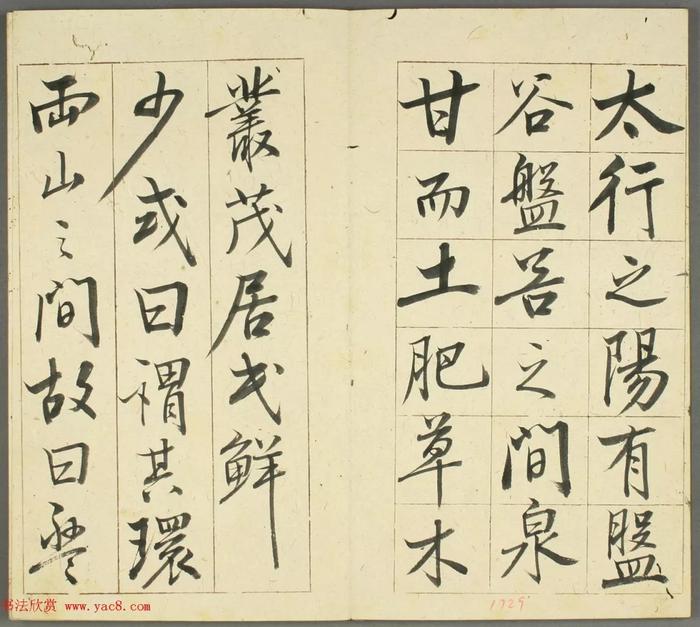 太行之陽有盤
谷盤谷之間泉
甘而土肥草木
叢茂居民鮮
少或曰謂其環
兩山之間故曰盤
书法欣赏 www.yac8.com